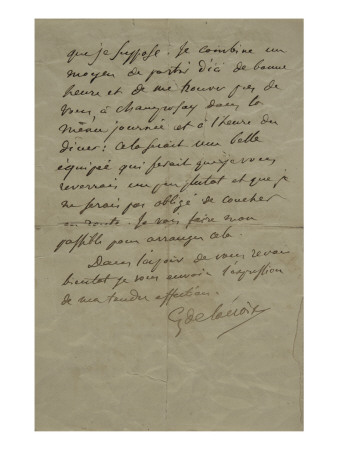 que je suppose. Je combine un
moyen de partir d'ici de bonne
heure et de me trouver près de
vous à Champrosay dans la
même journée et à l'heure du
dîner: cela serait une belle
équipée qui ferait que je vous
reverrais un peu plutot et que je
ne serais pas obligé de coucher
en route. Je vais faire mon
possible pour arranger cela.
Dans l'espoir de vous revoir
bientot je vous envoie l'expression
de ma tendre affection.